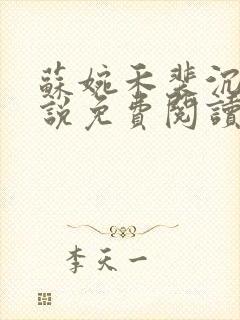 蘇婉禾裴沉
說免費閱讀
李天一